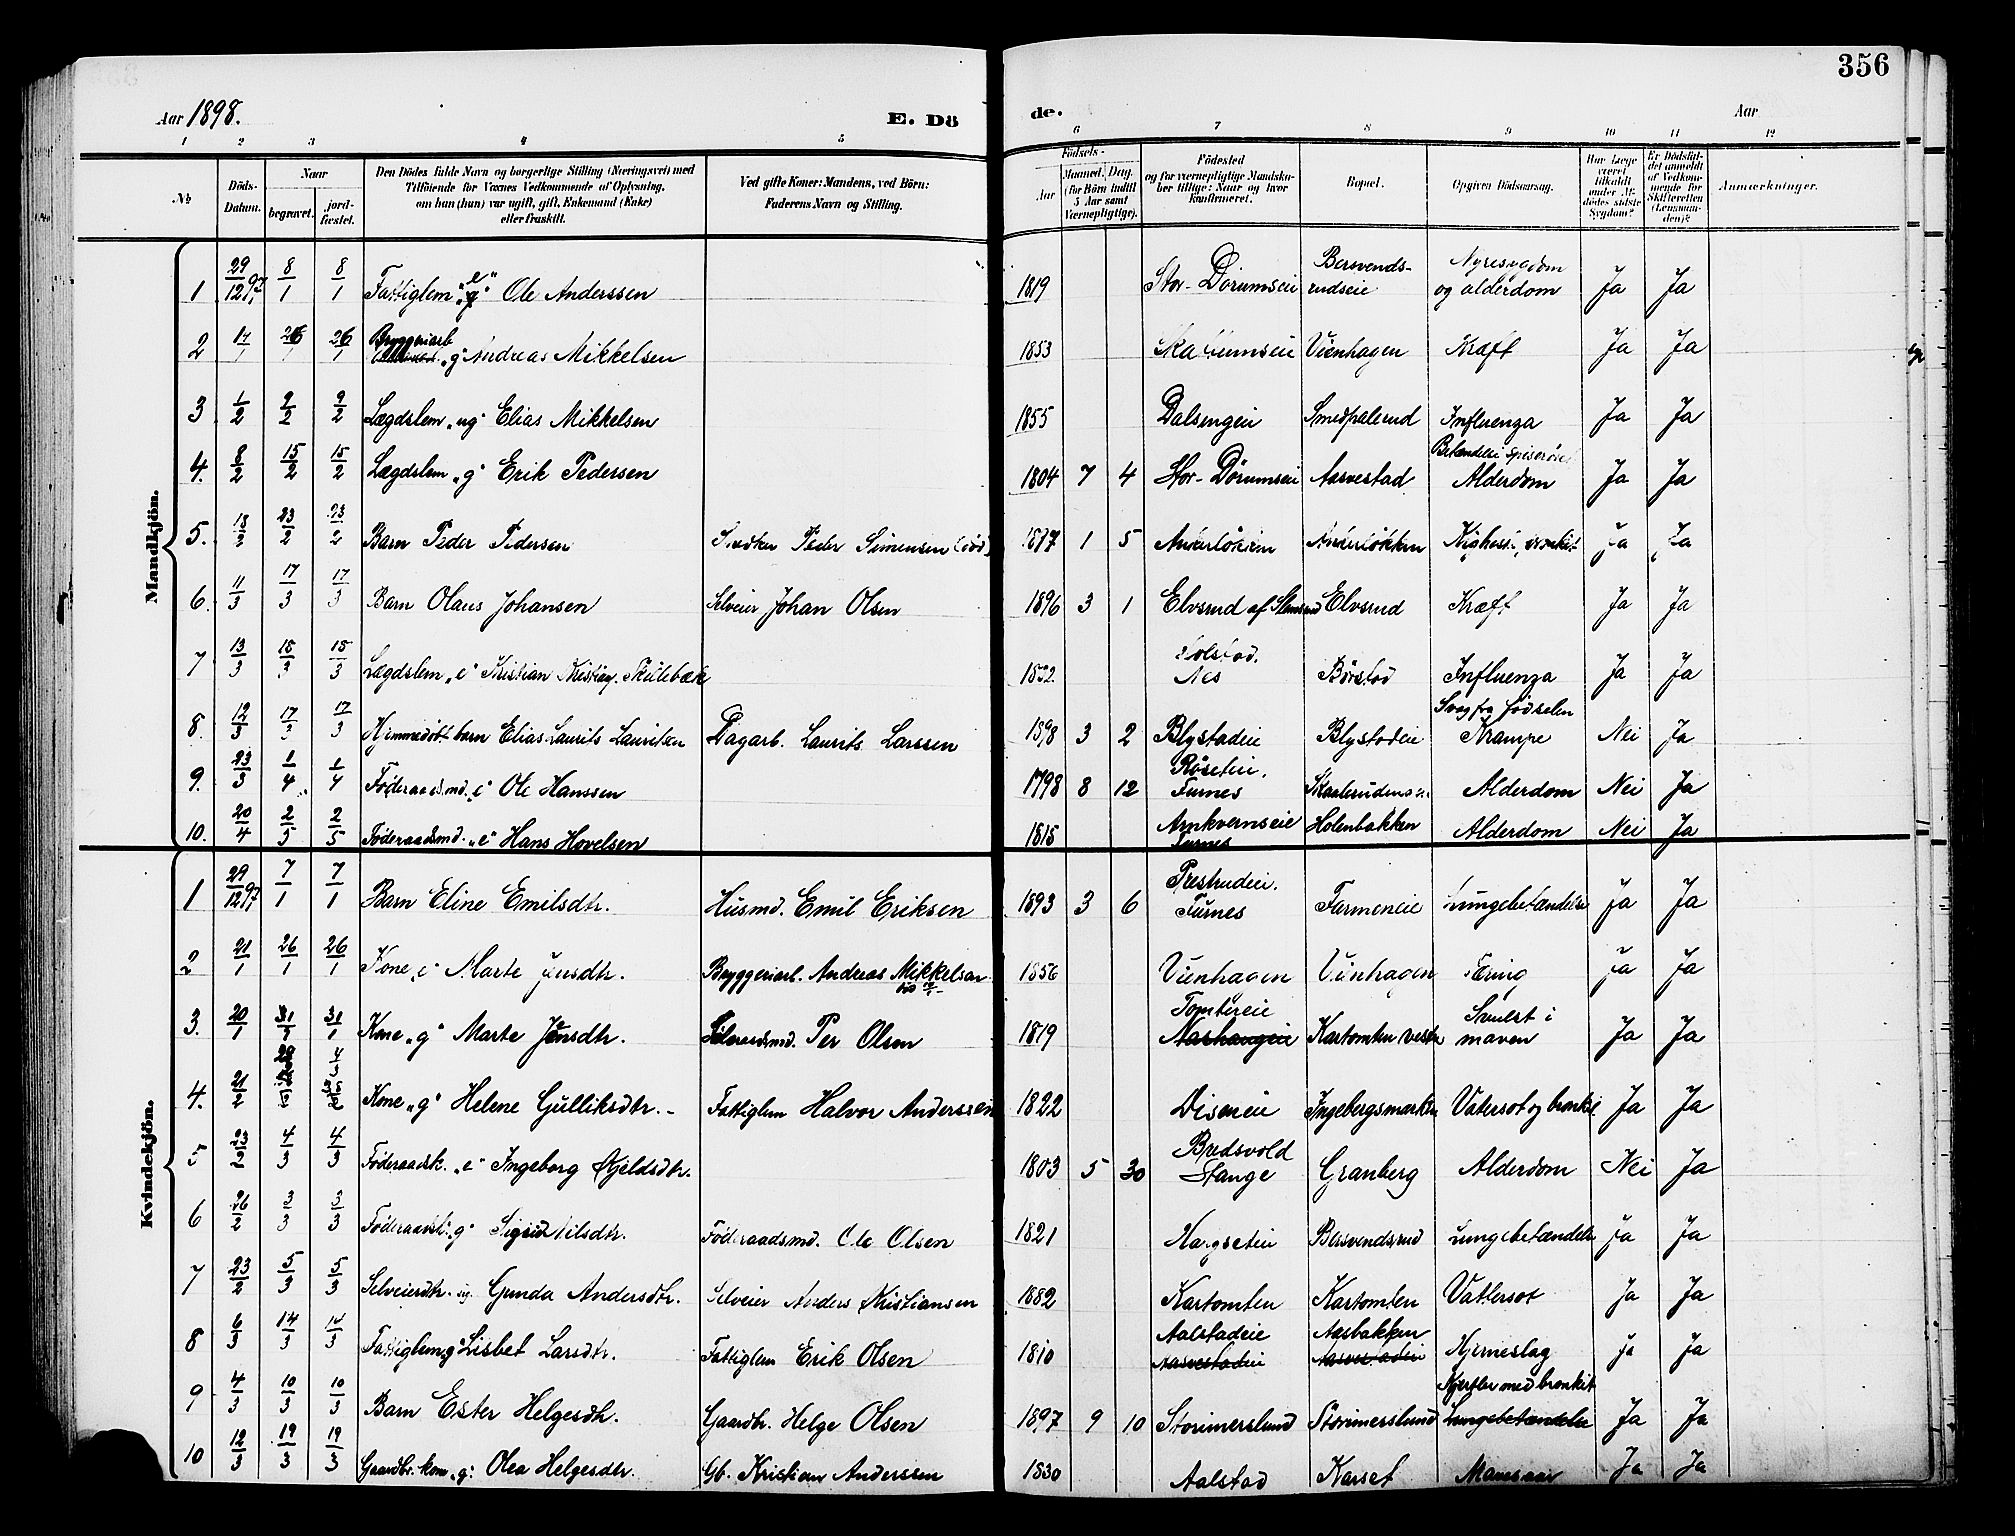 356
Aar 1898. E. Dö de. Aar
1 2 3 4 5 6 7 8 9 10 11 12
№ Döds-Datum. Naar begravet. jord-fæstet. Den Dödes fulde Navn og borgerlige Stilling (Næringsvei) med Tilföiende for Voxnes Vedkommende af Oplysning, om han (hun) var ugift, gift, Enkemand (Enke) eller fraskilt. Ved gifte Koner: Mandens, ved Börn: Faderens Navn og Stilling. Födsels- Aar Maaned, Dag. (for Börn indtil 5 Aar samt Værnepligtige). Födested og for værnepligtige Mandskaber tillige: Naar og hvor konfirmeret. Bopæl. Opgiven Dödsaarsag. Har Læge været tilkaldt under Afdödes sidste Sygdom? Er Dödsfaldet anmeldt af Vedkommende for Skifteretten (Lensmanden)? Anmærkninger.
Mandkjön.
1 29/12 97 8/1 8/1 Fattiglem "e" Ole Anderssen 1819 Stor-Dörumseie Bersvendsrudseie Nyresygdom og alderdom Ja Ja
2 17/1 26/1 26/1 Bryggeriarb "g" Andreas Mikkelsen 1853 Vienhagen Kræft Ja Ja
3 1/2 9/2 9/2 Lægdslem "ug" Elias Mikkelsen 1855 Dalsengeie Smedpalerud Influenza Ja Ja
4. 8/2 15/2 15/2 Lægdslem "g" Erik Pedersen 1804 7 4 Stor-Dörumseie Aasvestad Alderdom Ja Ja
5. 18/2 23/2 23/2 Barn Peder Pedersen Peder Simensen 1897 1 5 Ankerløkken Ankerløkken Kighoste, bronkit Ja Ja
6. 11/3 17/3 17/3 Barn Olaus Johansen Selveier Johan Olsen 1896 3 1 Elvsrud af Stensrud Elvsrud Kræft Ja Ja
7 13/3 15/3 15/3 Lægdslem "e" Kristian Kristians. Skillebæk Nes Börstad Influenza Ja Ja
8. 12/3 17/3 17/3 Hjemmedöbt barn Elias Laurits Lauritsen Dagarb. Laurits Larssen 1898 3 2 Blystadeie Blystadeie Svag fra fødselen Krampe Nei Ja
9. 23/3 1/4 1/4 Föderaadsmd. "e" Ole Hanssen 1798 8 12 Röseteie, Furnes Alderdom Nei Ja
10. 20/4 2/5 2/5 Föderaadsmd. "e" Hans Hovelsen 1815 Arnkvernseie Furnes Holenbakken Alderdom Nei Ja
Kvindekjön.
1 29/12 97 7/1 7/1 Barn Eline Emilsdtr. Husmd. Emil Eriksen 1893 3 6 Prestrudeie. Furnes Farmeneie Lungebetændelse Ja Ja
2 21/1 26/1 26/1 Kone "e" Marte Jensdtr. Bryggeriarb. Andreas Mikkelsen 1856 Vienhagen Vienhagen Tæring Ja Ja
3. 20/1 31/1 31/1 Kone "g" Marte Jensdtr. Föderaadsmd. Per Olsen 1819 Tomtereie Kartomten vestre Svulst i maven Ja Ja
4. 21/2 Kone "g" Helene Gulliksdtr. Fattiglem Halvor Anderssen 1822 Diseneie Ingebergsmarken Vatersot og bronkit Ja Ja
5 23/2 4/3 4/3 Föderaadsk. "e" Ingeborg Kjeldsdtr. 1803 5 30 Bredsvold Stange Granberg Alderdom Nei Ja
6 26/2 3/3 3/3 Föderaadsk. "g" Sigrid Nilsdtr. Föderaadsmd. Ole Olsen 1821 Bersvendsrud Lungebetændelse Ja Ja
7 23/2 5/3 5/3 Selveierdtr. ug. Gunda Andersdtr. Selveier Anders Kristiansen 1882 Kartomten Kartomten Vattersot Ja Ja
8 6/3 14/3 14/3 Fattiglem "g" Lisbet Larsdtr. Fattiglem Erik Olsen 1810 Aalstadeie Aasvestadeie Aasbakken Aasvestadeie Hjerneslag Ja Ja
9 4/3 10/3 10/3 Barn Ester Helgesdtr. Gaardbr. Helge Olsen 1897 9 10 Storimerslund Storimerslund Kjertler med bronkit Lungebetændelse Ja Ja
10 12/3 19/3 19/3 Gaardbr. kone "g" Olea Helgesdtr. Gb. Kristian Anderssen 1830 Aalstad Karset Mavesaar Ja Ja